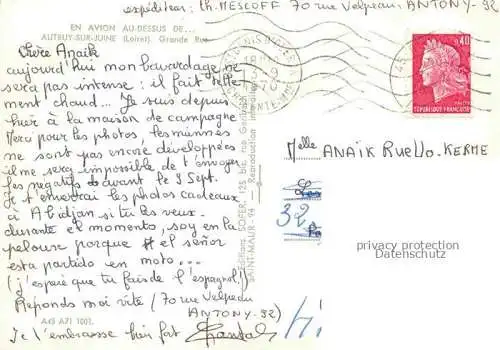 expéditeur: Ch. MESCOFF 70 rue Velpeau, ANTONY-92
EN AVION AU-DESSUS DE...
AUTRUY-SUR-JUINE (Loiret) Grande Rue
Chère Anaik
aujourd'hui mon bavardage ne
sera pas intense: il fait telle-
ment chaud... Je suis depuis
hier à la maison de campagne
Merci pour les photos, les miennes
ne sont pas encore développées
il me sera impossible de t'envoyer
les négatifs avant le 9 Sept.
Je t'enverrai les photos cadeaux
à Abidjan si tu les veux.
durante el momento, soy en la
pelouse porque el señor
esta partido en moto...
(j'espère que tu fais de l'espagnol!)
Réponds moi vite (70 rue Velpeau
ANTONY-92)
Je t'embrasse bien fort Chantal
A45 A71 1001.
Editions SOFER, 125 bis, rue Garibaldi
SAINT-MAUR - 94 - Reproduction interdite
0,40
REPUBLIQUE FRANÇAISE
Melle ANAÏK RUELLO. KERME
32
privacy protection
Datenschutz